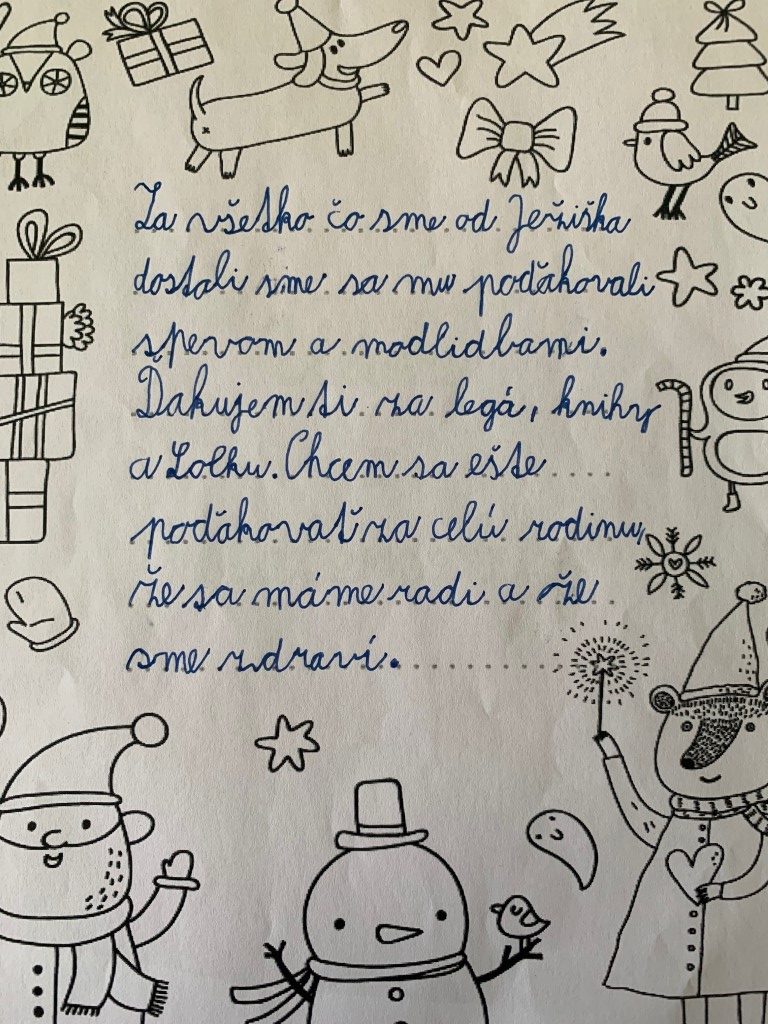 Za všetko čo sme od Ježiška
dostali sme sa mu poďakovali
spevom a modlidbami.
Ďakujem ti za legá, knihy
a Lolku. Chcem sa ešte
poďakovať za celú rodinu,
že sa máme radi a že
sme zdraví.